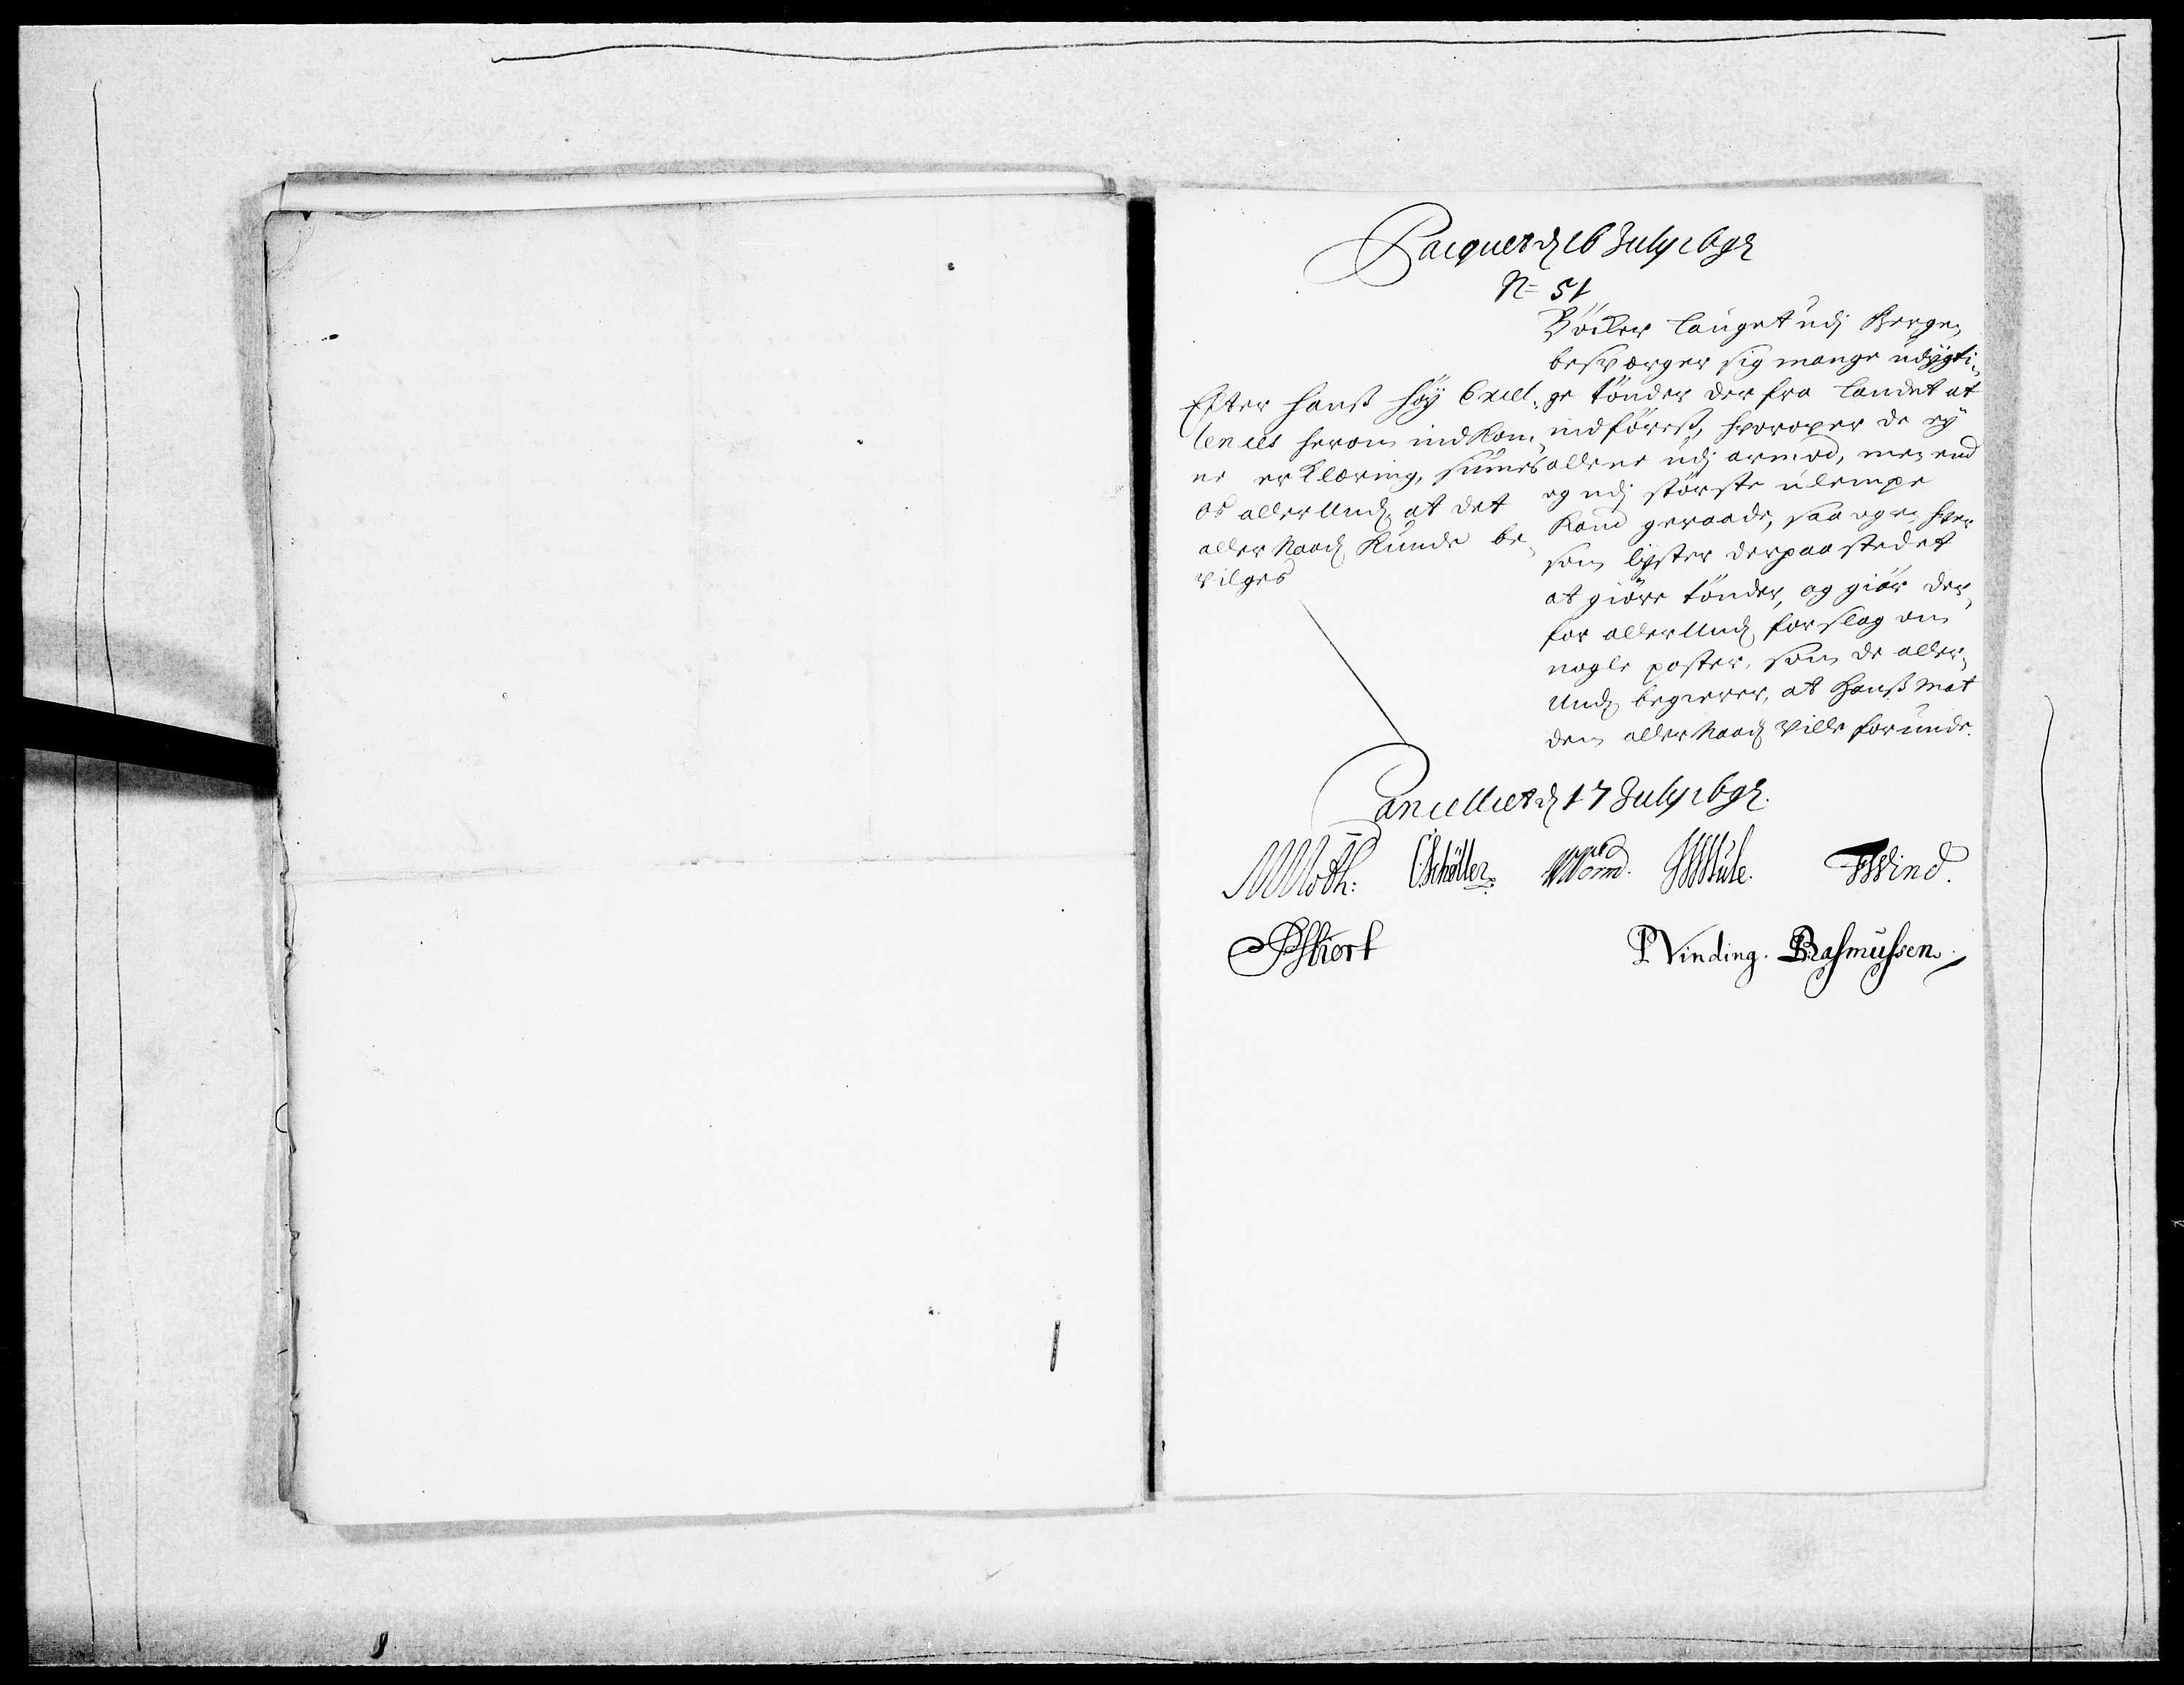 Pacquet d 16 July 1692
N= 51
Bödker lauget udj Bergen
besværger sig mange udygti-
ge tönder der fra landet at
indföriß, hvorover de ey
allene udj armod, men end
og udj störste ulempe
kand geraade, saa og en hver
som lyster der paa stedet
at giöre tönder, og giör der-
for allerUnd forslag om
nogle poster, som de aller-
Und begierer, at Hanß Mat
dem allerNaad ville forunde.
Efter hanß höy Excel-
lences herom indkom-
ne erklæring, siunes
os allerUnd at det
allerNaad kunde be-
vilges
Cancelliet d 17 July 1692.
MMoth: CSchöller WWorm. HMule. HWind.
PSkiort PVinding. BRasmussen.